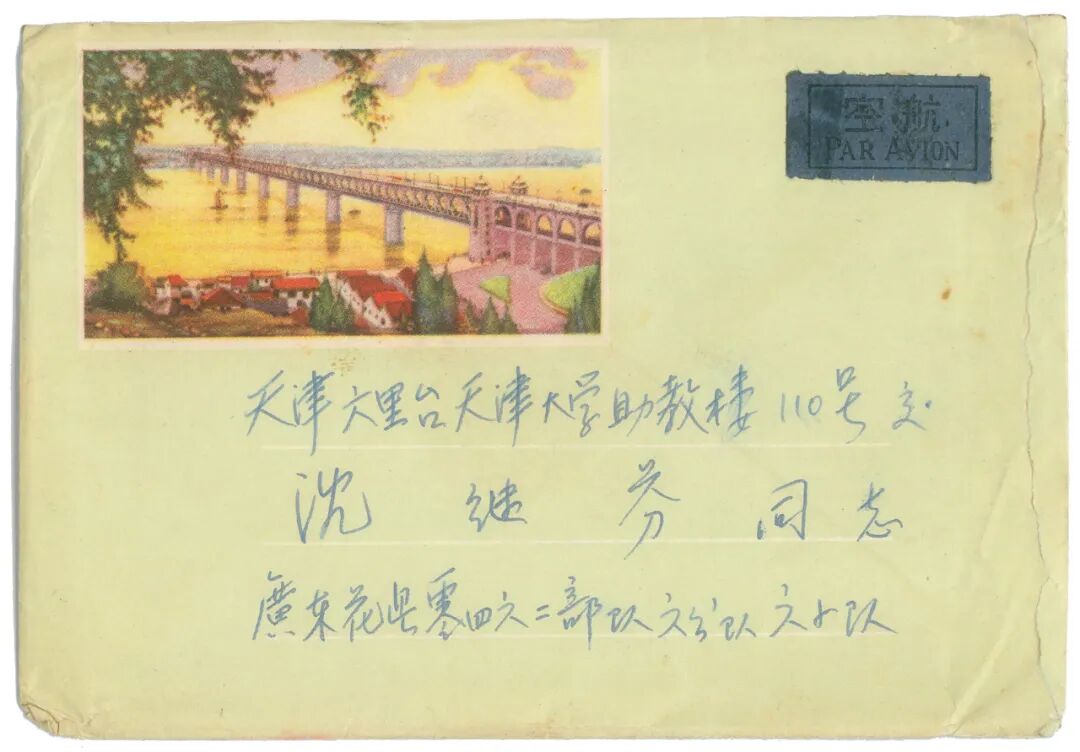 空航
PAR AVION
天津六里台天津大学助教楼110号交
沈继芬同志
廣东花县零四六二部队六分队六小队